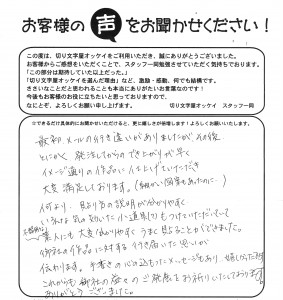 お客様の声をお聞かせください！
この度は、切り文字屋オッケイをご利用いただき、誠にありがとうございました。
お客様からご感想をいただくことで、スタッフ一同勉強させていただく気持ちでおります。
「この部分は期待していた以上だった。」
「切り文字屋オッケイを選んだ理由」など、激励・感動、何でも結構です。
ささいなことだと思われることも本当にありがたいお言葉なのです！
今後もお客様のお役に立ちたいと思っておりますので、
なにとぞ、よろしくお願い申し上げます。 切り文字屋オッケイ スタッフ一同
※できるだけ具体的にお聞かせいただけると、更に嬉しさが倍増します！よろしくお願いいたします。
最初、メールの行き違いがありましたが、その後
とにかく 発注してからのできあがりが早く
イメージ通りの作品に仕上げていただき
大変満足しております。(細かい図案もあったのに…)
何より、貼り方の説明が分かりやすく
いろんな気の効いた小道具までつけていただいていて
素人にも 大変貼りやすく うまく貼ることができました。
御社の作品に対する 行き届いた思いが
伝わります。手書きの心の込もったメッセージもあり、嬉しくなりました
これからも 御社の益々の ご発展をお祈りいたしております
ありがとう ございました。